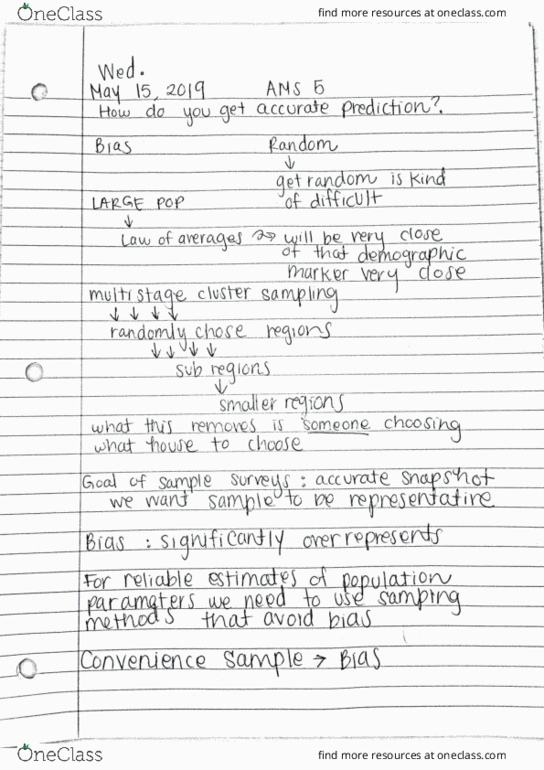 OneClass
find more resources at oneclass.com
Wed.
May 15, 2019 AMS 5
How do you get accurate prediction?.
Bias Random
↓
get random is kind
of difficult
LARGE POP
↓
Law of averages → will be very close
of that demographic
marker very close
multistage cluster sampling
↓ ↓ ↓ ↓
randomly chose regions
↓ ↓ ↓ ↓
sub regions
↓
smaller regions
what this removes is someone choosing
what house to choose
Goal of sample surveys: accurate snapshot
we want sample to be representative
Bias : significantly overrepresents
For reliable estimates of population
parameters we need to use samping
methods that avoid bias
Convenience sample → Bias
OneClass
find more resources at oneclass.com